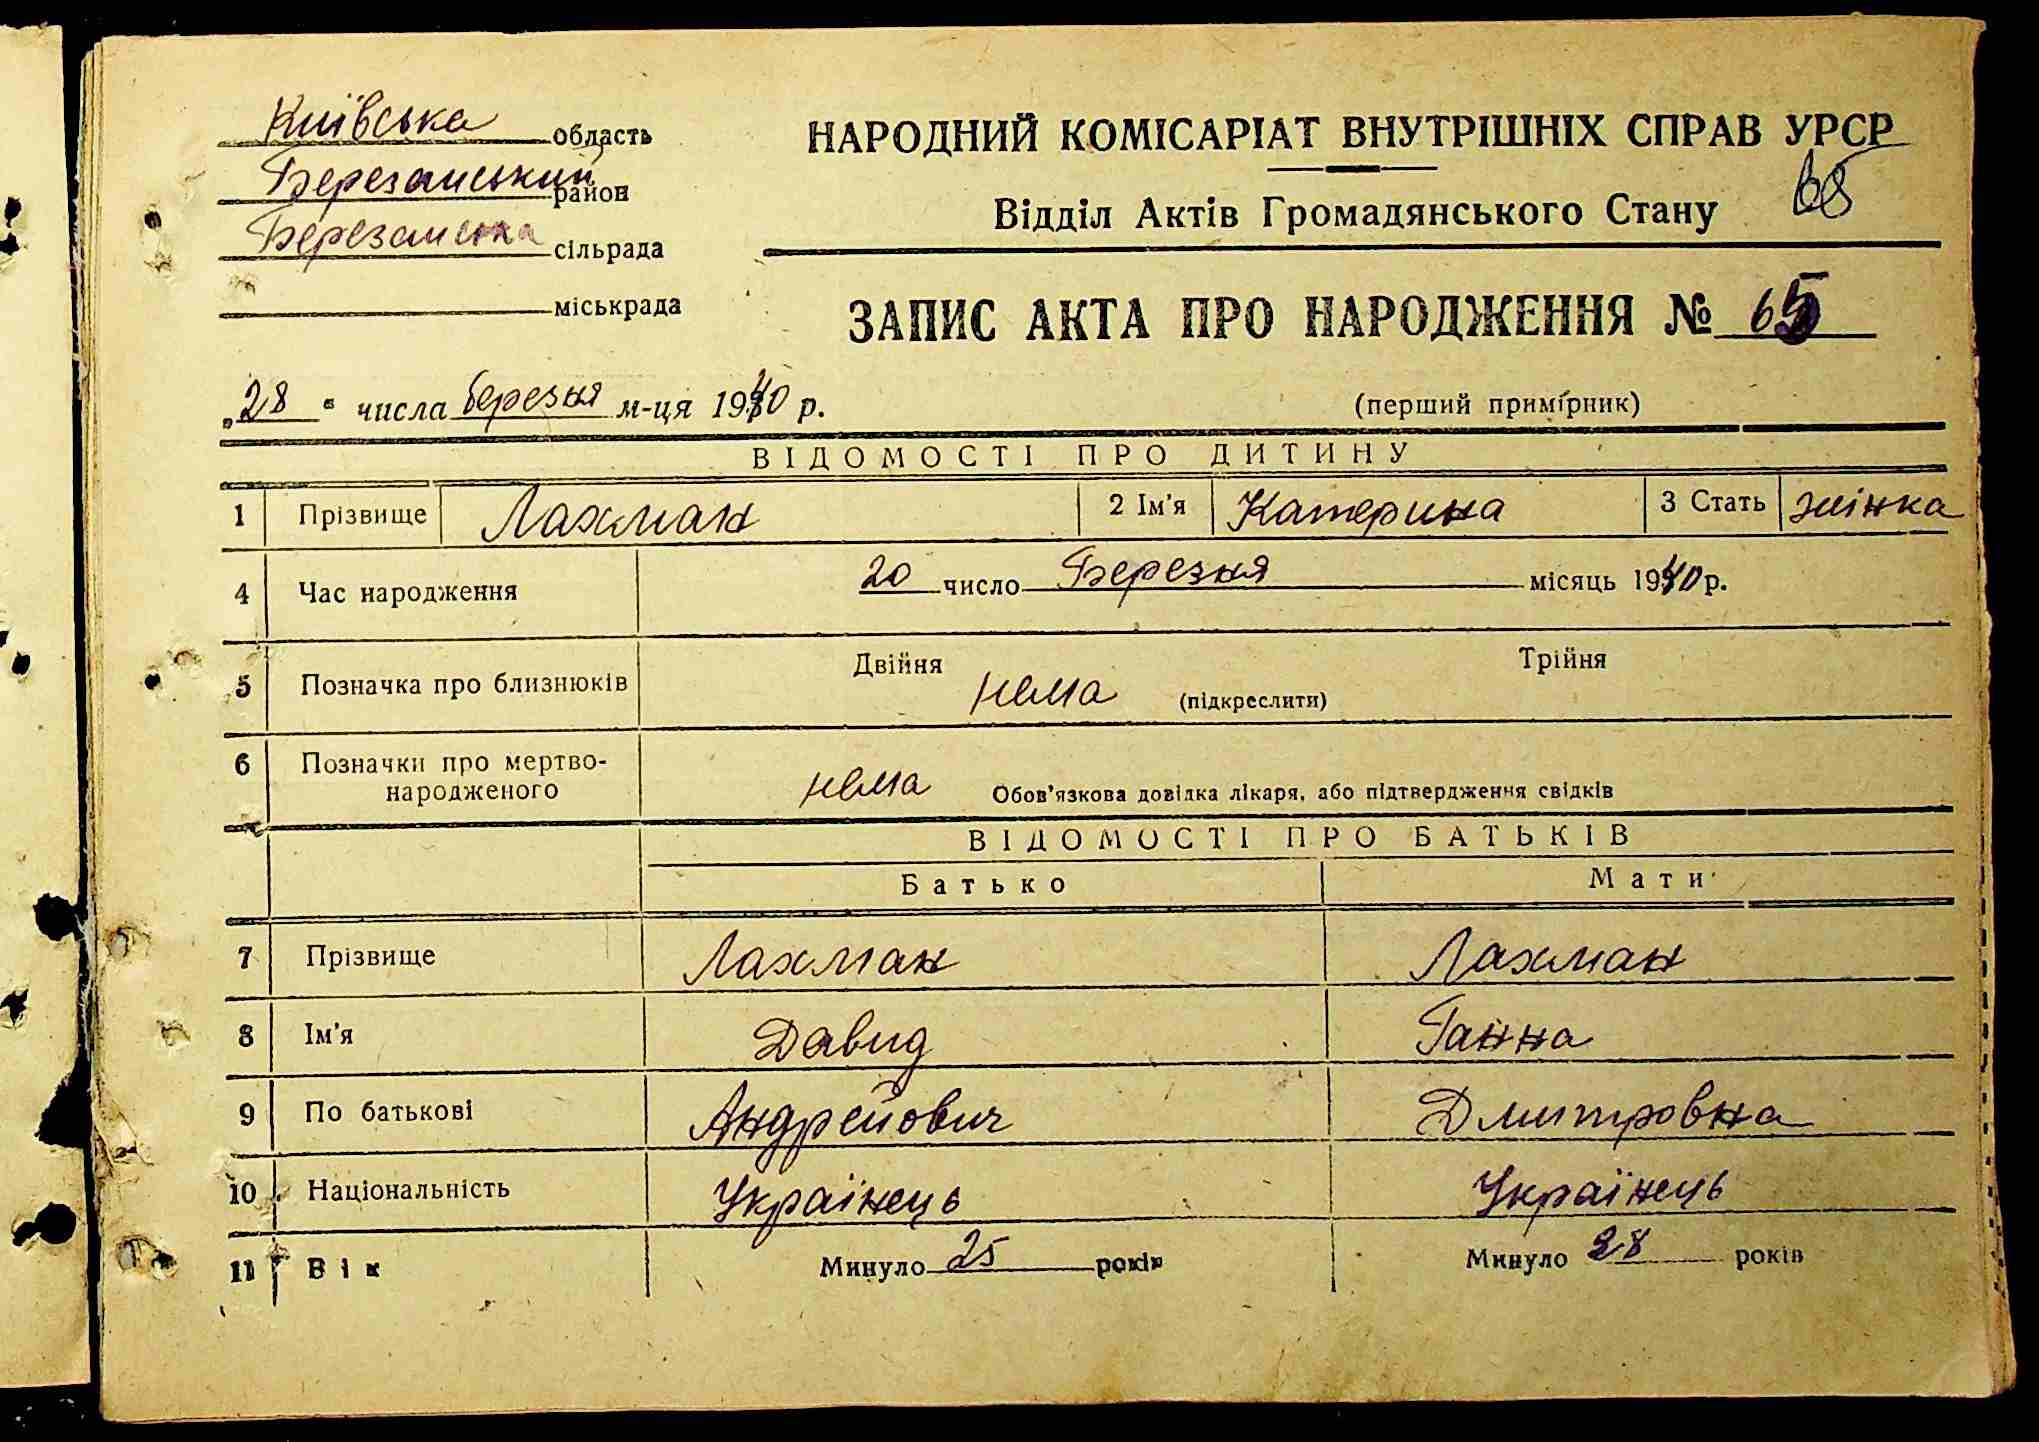 Київська область
Березанський район
Березанська сільрада
міськрада
НАРОДНИЙ КОМІСАРІАТ ВНУТРІШНІХ СПРАВ УРСР
Відділ Актів Громадянського Стану
ЗАПИС АКТА ПРО НАРОДЖЕННЯ № 65
„28" числа березня м-ця 1940 р.
(перший примірник)
ВІДОМОСТІ ПРО ДИТИНУ
1 Прізвище Лахман 2 Ім'я Катерина 3 Стать жінка
4 Час народження 20 число Березня місяць 1940 р.
5 Позначка про близнюків Двійня нема (підкреслити) Трійня
6 Позначки про мертво-
народженого нема Обов'язкова довідка лікаря, або підтвердження свідків
ВІДОМОСТІ ПРО БАТЬКІВ
Батько Мати
7 Прізвище Лахман Лахман
8 Ім'я Давид Ганна
9 По батькові Андрейович Дмитровна
10 Національність Українець Українець
11 Вік Минуло 25 років Минуло 28 років